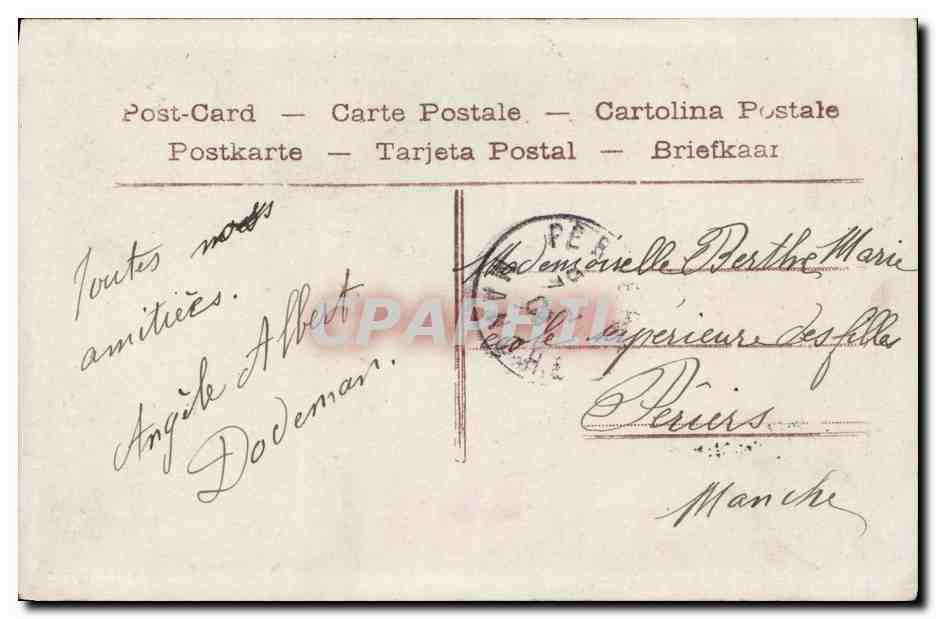 Post-Card — Carte Postale — Cartolina Postale
Postkarte — Tarjeta Postal — Briefkaar
Toutes nos
amitiées.
Angèle Albert
Dodeman.
Mademoiselle Berthe Marie
école supérieure des filles
Périers
Manche
PER
MANCHE
CPAPHIL